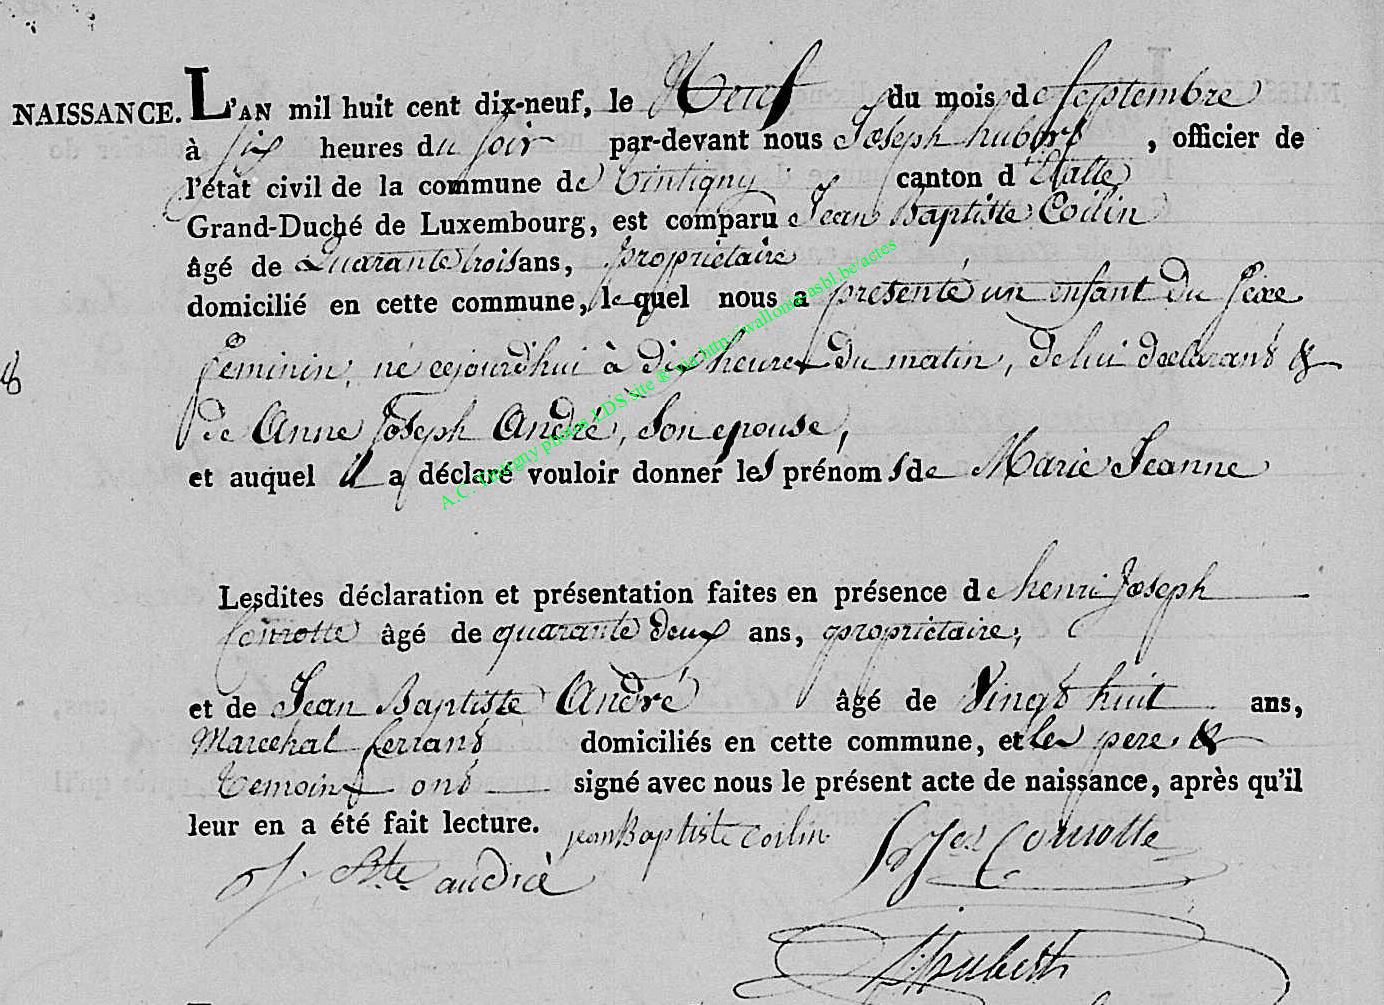 NAISSANCE. L'AN mil huit cent dix-neuf, le Neuf du mois de Septembre
à six heures du soir par-devant nous Joseph hubert, officier de
l'état civil de la commune de Tintigny canton d'Etalle
Grand-Duché de Luxembourg, est comparu Jean Baptiste Coilin
âgé de Quarante trois ans, propriétaire
domicilié en cette commune, lequel nous a présenté un enfant du sexe
féminin, né cejourd'hui à dix heures du matin, de lui déclarant &
de Anne Joseph André, son epouse,
et auquel il a déclaré vouloir donner les prénoms de Marie Jeanne
Lesdites déclaration et présentation faites en présence de henri Joseph
Conrotte âgé de quarante deux ans, propriétaire,
et de Jean Baptiste André âgé de Vingt huit ans,
Marechal ferrant domiciliés en cette commune, et les pere &
temoins ont signé avec nous le présent acte de naissance, après qu'il
leur en a été fait lecture. jean Baptiste Coilin
Conrotte
J. Bte andré
Hubert
A.C. Tintigny photos LDS site ® via http://wallonia-asbl.be/actes